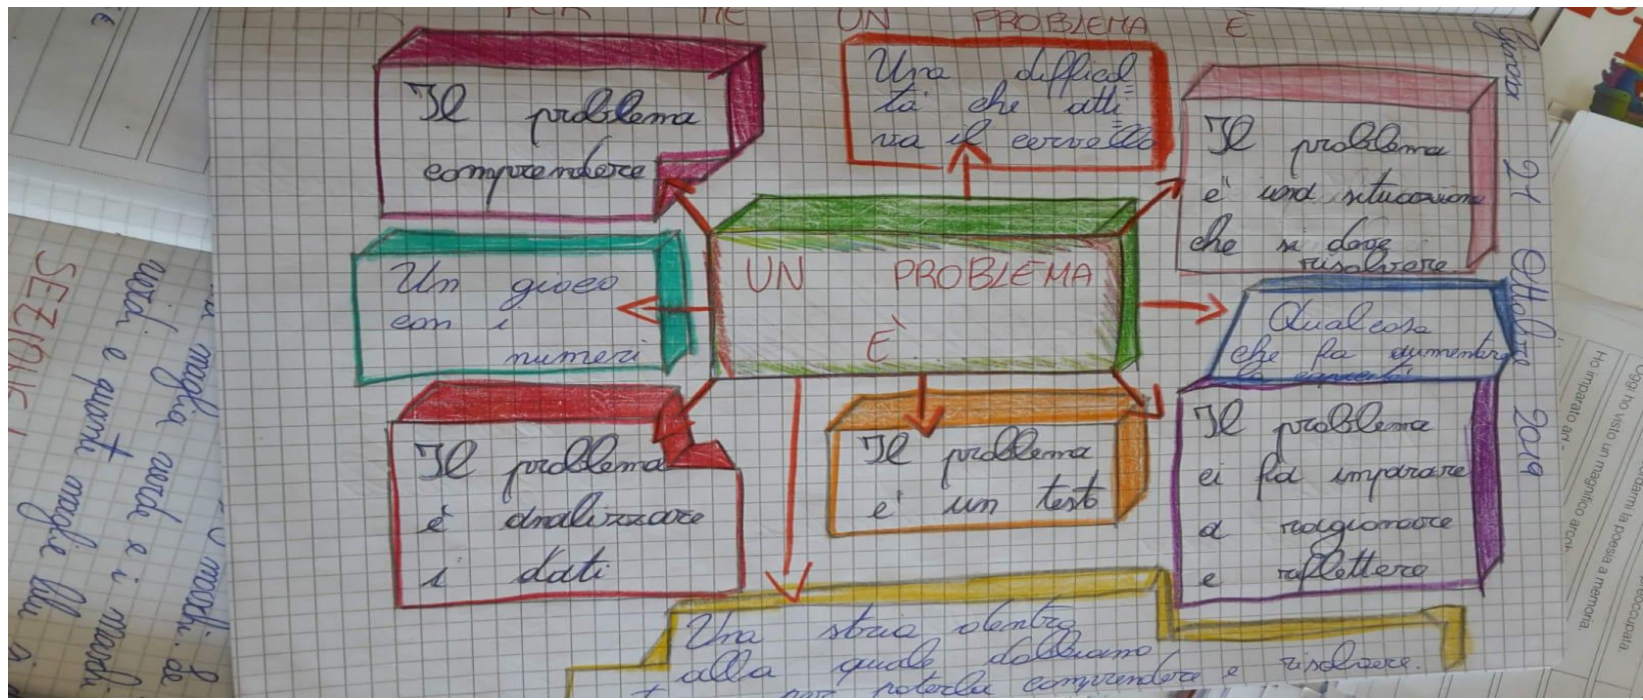 PER ME UN PROBLEMA È
Il problema
comprendere
Una diffical
tà che atti
va il cervello
Il problema
è una situazione
che si deve
risolvere.
Un gioco
con i
numeri
UN PROBLEMA
È
Qualcosa
che fa aumentare
la capacità
Il problema
è analizzare
i dati
Il problema
è un test
Il problema
ci fa imparare
a ragionare
e riflettere
Una storia dentro
alla quale dobbiamo
per poterla comprendere e risolvere.
Ginosa 21 Ottobre 2019
maglia verde e i
verdi e quante maglie blu
SEZIONE
oggi ho visto un magnifico
Ho imparato
la poesia a memoria.